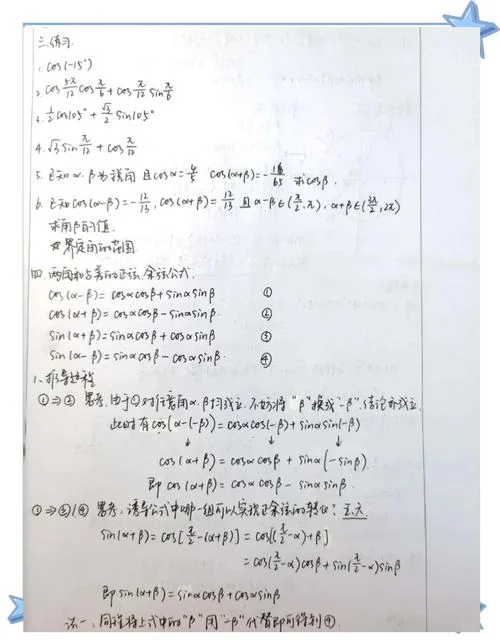 三.练习.
1. cos(-15°)
2. cos5π/12 cosπ/6 + cosπ/12 sinπ/6
3. 1/2 cos105° + √3/2 sin105°
4. √3 sinπ/12 + cosπ/12
5. 已知α.β为锐角 且cosα=4/5 cos(α+β)=-16/65 求cosβ.
6. 已知cos(α-β)=-12/13, cos(α+β)=12/13 且α-β∈(π/2,π), α+β∈(3π/2,2π)
求角β的值.
界定角的范围
四.两角和与差的正弦、余弦公式.
cos(α-β)=cosαcosβ+sinαsinβ ①
cos(α+β)=cosαcosβ-sinαsinβ ②
sin(α+β)=sinαcosβ+cosαsinβ ③
sin(α-β)=sinαcosβ-cosαsinβ. ④
1、推导过程
①⇒② 思考:由于①对任意角α.β均成立.不妨将"β"换成"-β".结论亦成立.
此时有cos(α-(-β))=cosαcos(-β)+sinαsin(-β)
↓ ↓ ↓
cos(α+β)=cosαcosβ+sinα(-sinβ)
即cos(α+β)=cosαcosβ-sinαsinβ.
①⇒③/④ 思考:诱导公式中哪一组可以实现正余弦的转化? 五、六
sin(α+β)=cos[π/2-(α+β)]=cos[(π/2-α)+β]
=cos(π/2-α)cosβ+sin(π/2-α)sinβ
即sin(α+β)=sinαcosβ+cosαsinβ
法一、同样将上式中的"β"用"-β"代替即可得到④.